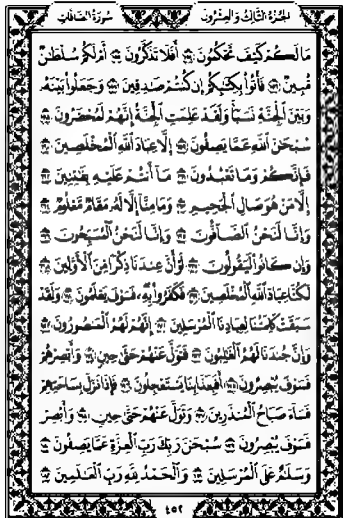 الجزء الثالث والعشرون
سورة الصافات
مَا لَكُمْ كَيْفَ تَحْكُمُونَ ۝ أَفَلَا تَذَكَّرُونَ ۝ أَمْ لَكُمْ سُلْطَانٌ
مُّبِينٌ ۝ فَأْتُوا بِكِتَابِكُمْ إِن كُنتُمْ صَادِقِينَ ۝ وَجَعَلُوا بَيْنَهُ
وَبَيْنَ الْجِنَّةِ نَسَبًا وَلَقَدْ عَلِمَتِ الْجِنَّةُ إِنَّهُمْ لَمُحْضَرُونَ ۝
سُبْحَانَ اللَّهِ عَمَّا يَصِفُونَ ۝ إِلَّا عِبَادَ اللَّهِ الْمُخْلَصِينَ ۝
فَإِنَّكُمْ وَمَا تَعْبُدُونَ ۝ مَا أَنتُمْ عَلَيْهِ بِفَاتِنِينَ ۝
إِلَّا مَنْ هُوَ صَالِ الْجَحِيمِ ۝ وَمَا مِنَّا إِلَّا لَهُ مَقَامٌ مَّعْلُومٌ ۝
وَإِنَّا لَنَحْنُ الصَّافُّونَ ۝ وَإِنَّا لَنَحْنُ الْمُسَبِّحُونَ ۝
وَإِن كَانُوا لَيَقُولُونَ ۝ لَوْ أَنَّ عِندَنَا ذِكْرًا مِّنَ الْأَوَّلِينَ ۝
لَكُنَّا عِبَادَ اللَّهِ الْمُخْلَصِينَ ۝ فَكَفَرُوا بِهِ فَسَوْفَ يَعْلَمُونَ ۝ وَلَقَدْ
سَبَقَتْ كَلِمَتُنَا لِعِبَادِنَا الْمُرْسَلِينَ ۝ إِنَّهُمْ لَهُمُ الْمَنصُورُونَ ۝
وَإِنَّ جُندَنَا لَهُمُ الْغَالِبُونَ ۝ فَتَوَلَّ عَنْهُمْ حَتَّىٰ حِينٍ ۝ وَأَبْصِرْهُمْ
فَسَوْفَ يُبْصِرُونَ ۝ أَفَبِعَذَابِنَا يَسْتَعْجِلُونَ ۝ فَإِذَا نَزَلَ بِسَاحَتِهِمْ
فَسَاءَ صَبَاحُ الْمُنذَرِينَ ۝ وَتَوَلَّ عَنْهُمْ حَتَّىٰ حِينٍ ۝ وَأَبْصِرْ
فَسَوْفَ يُبْصِرُونَ ۝ سُبْحَانَ رَبِّكَ رَبِّ الْعِزَّةِ عَمَّا يَصِفُونَ ۝
وَسَلَامٌ عَلَى الْمُرْسَلِينَ ۝ وَالْحَمْدُ لِلَّهِ رَبِّ الْعَالَمِينَ ۝
٤٥٢